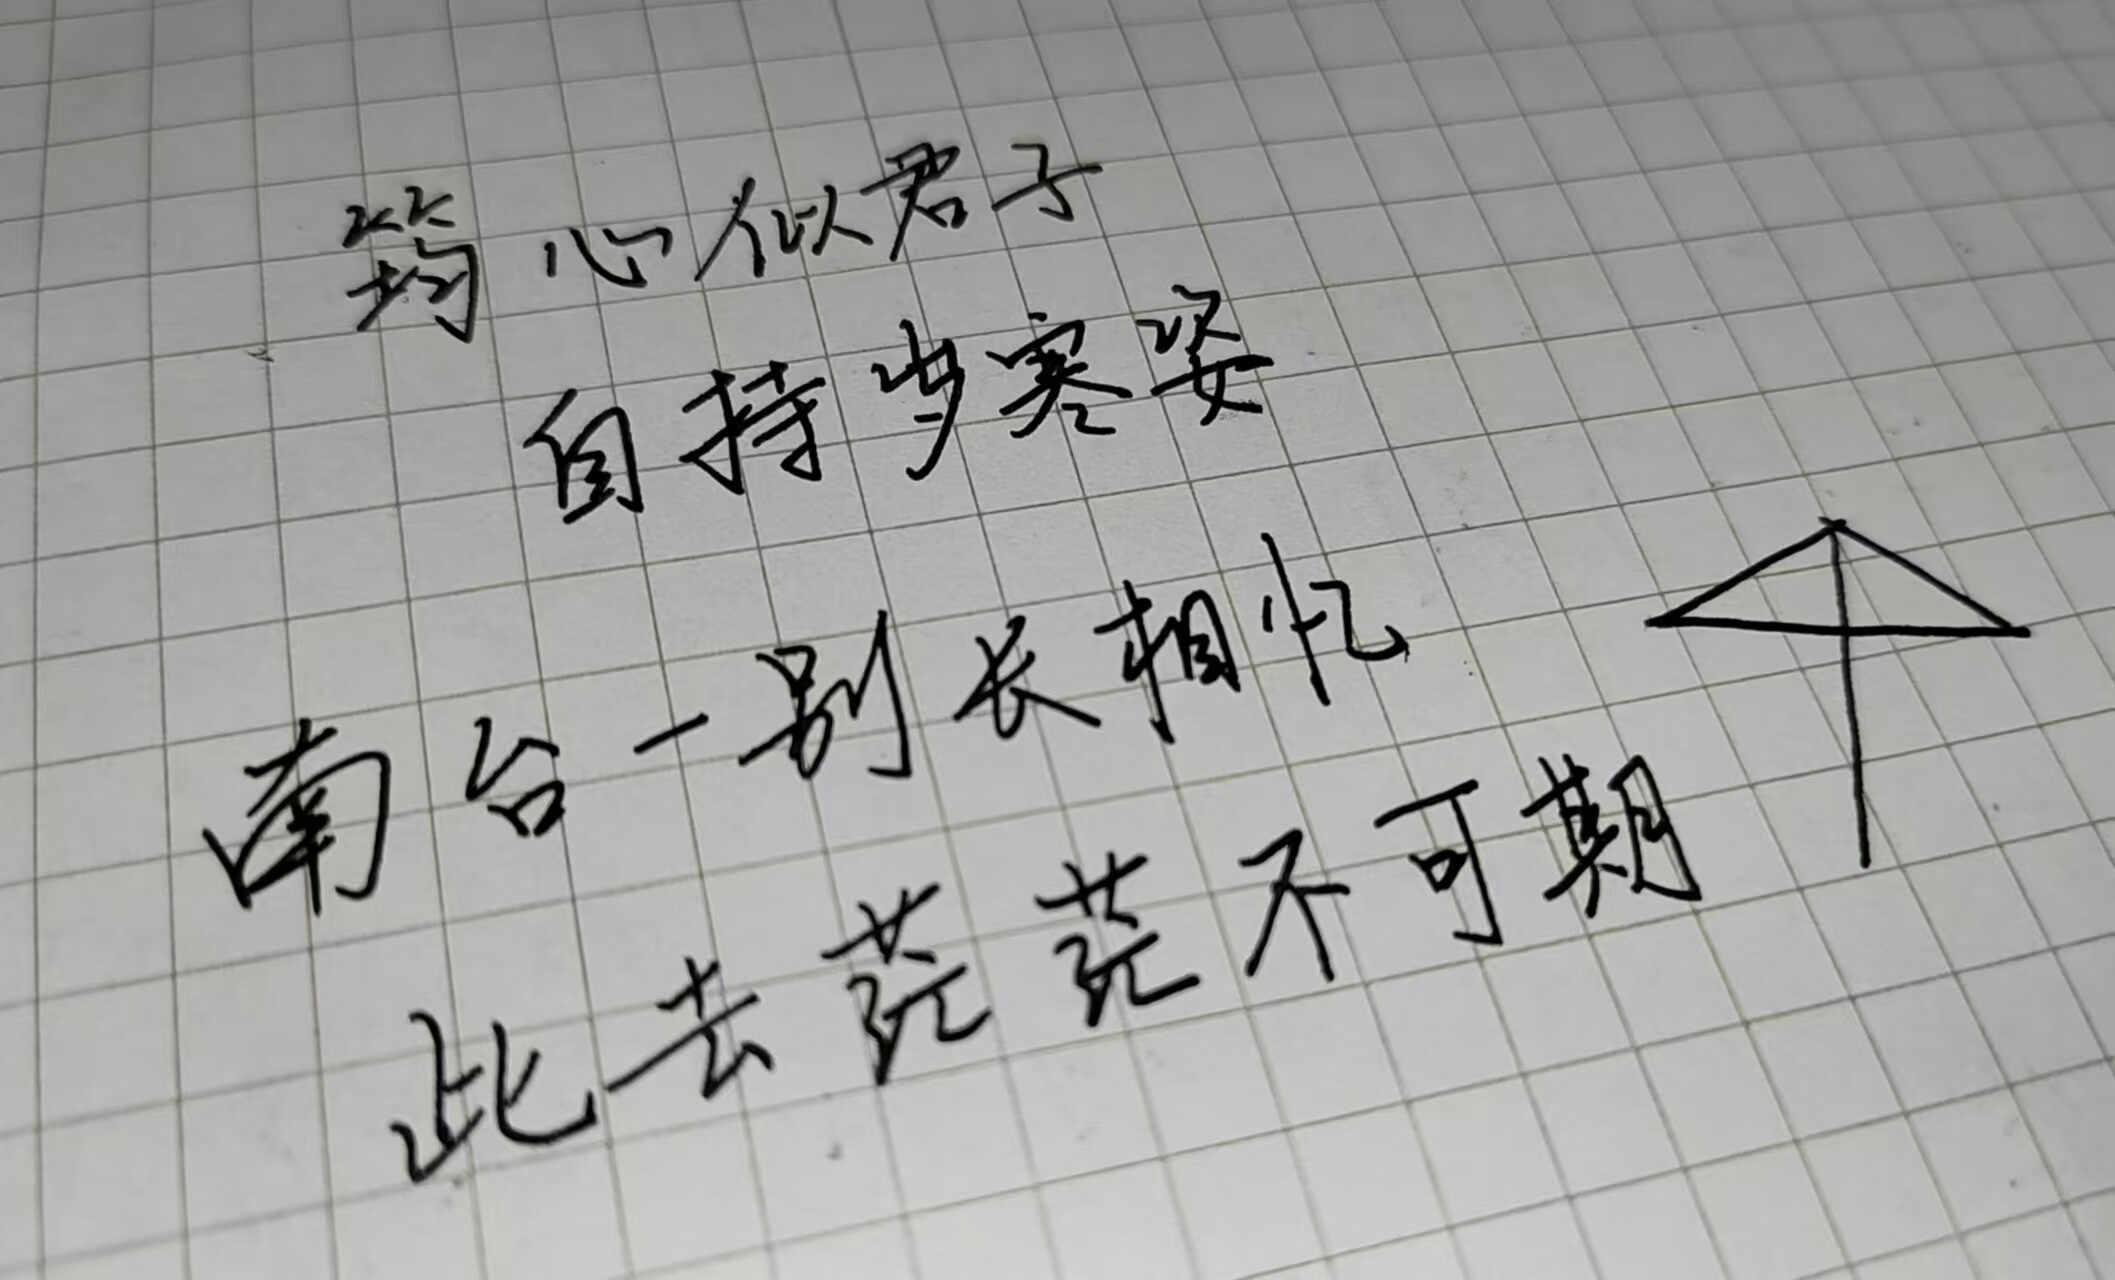 筠心似君子
自持岁寒姿
南台一别长相忆
此去茫茫不可期